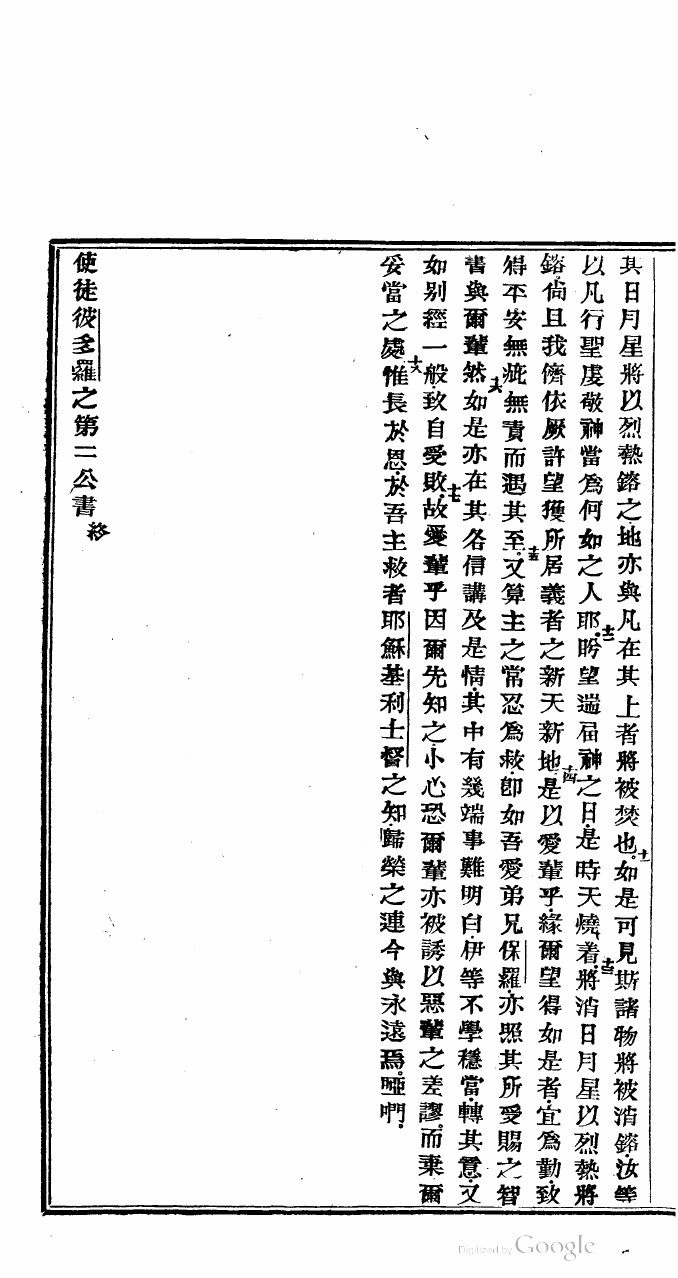 其日月星將以烈熱鎔之地亦與凡在其上者將被焚也。十一如是可見斯諸物將被消鎔汝等
以凡行聖虔敬神當爲何如之人耶。十二盻望遄屆神之日是時天燒着十三將消日月星以烈熱將
鎔。尙且我儕依厥許望獲所居義者之新天新地。十四是以愛輩乎緣爾望得如是者宜爲勤致
得平安無疵無責而遇其至。十五又算主之常忍爲救卽如吾愛弟兄保羅亦照其所受賜之智
書與爾輩然。十六如是亦在其各信講及是情其中有幾端事難明白伊等不學穩當轉其意又
如別經一般致自受敗。十七故愛輩乎因爾先知之小心恐爾輩亦被誘以惡輩之差謬。而棄爾
妥當之處。十八惟長於恩於吾主救者耶穌基利士督之知歸榮之連今與永遠焉。啞們
使徒彼多羅之第二公書終
Digitized by Google